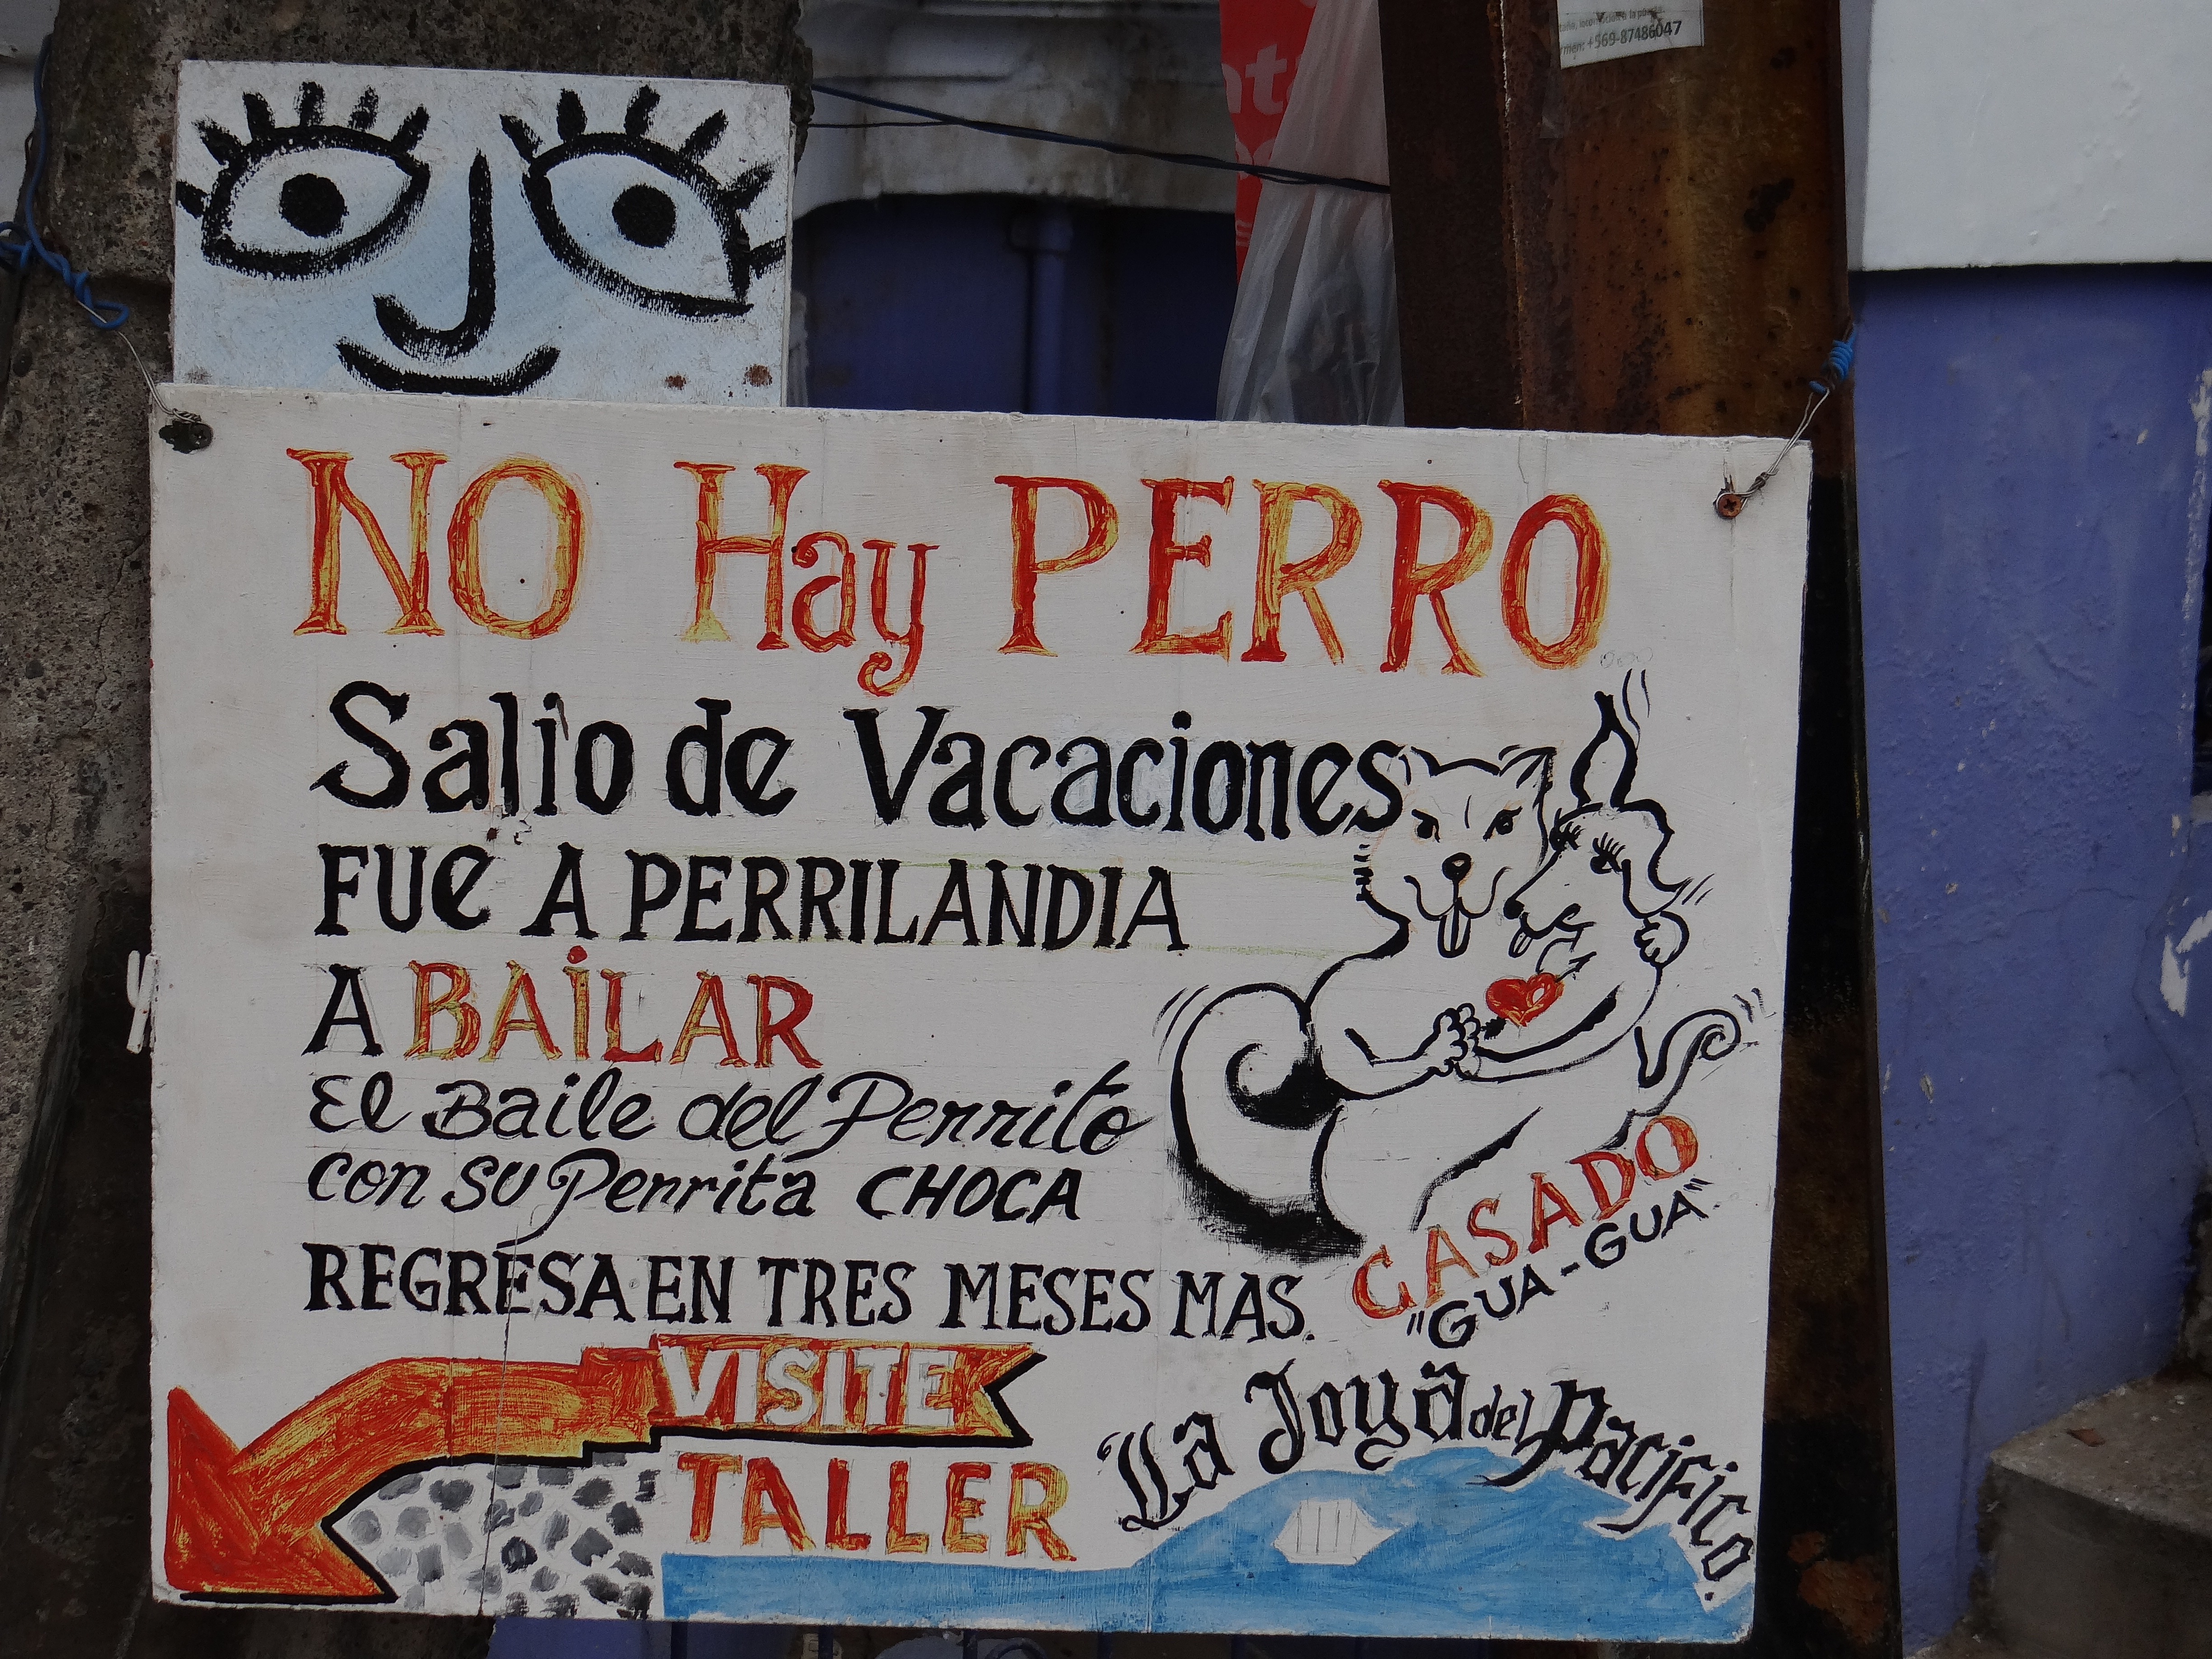 +569-87486047
NO Hay PERRO...
Salio de Vacaciones
FUE A PERRILANDIA
A BAiLAR
El Baile del Perrito
con su Perrita CHOCA
REGRESA EN TRES MESES MAS.
CASADO
"GUA-GUA"
VISITE
TALLER
La Joya del Pacifico.